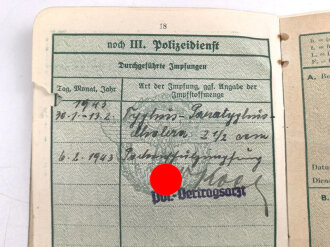 18
noch III. Polizeidienst
Durchgeführte Impfungen
Tag, Monat, Jahr
Art der Impfung, ggf. Angabe der Impfstoffmenge
1943
30.1.-13.2. Typhus- Paratyphus-
Cholera 2 1/2 ccm
6.2.1943 Pockenschutzimpfung
Pol.-Vertragsarzt
A.
B.